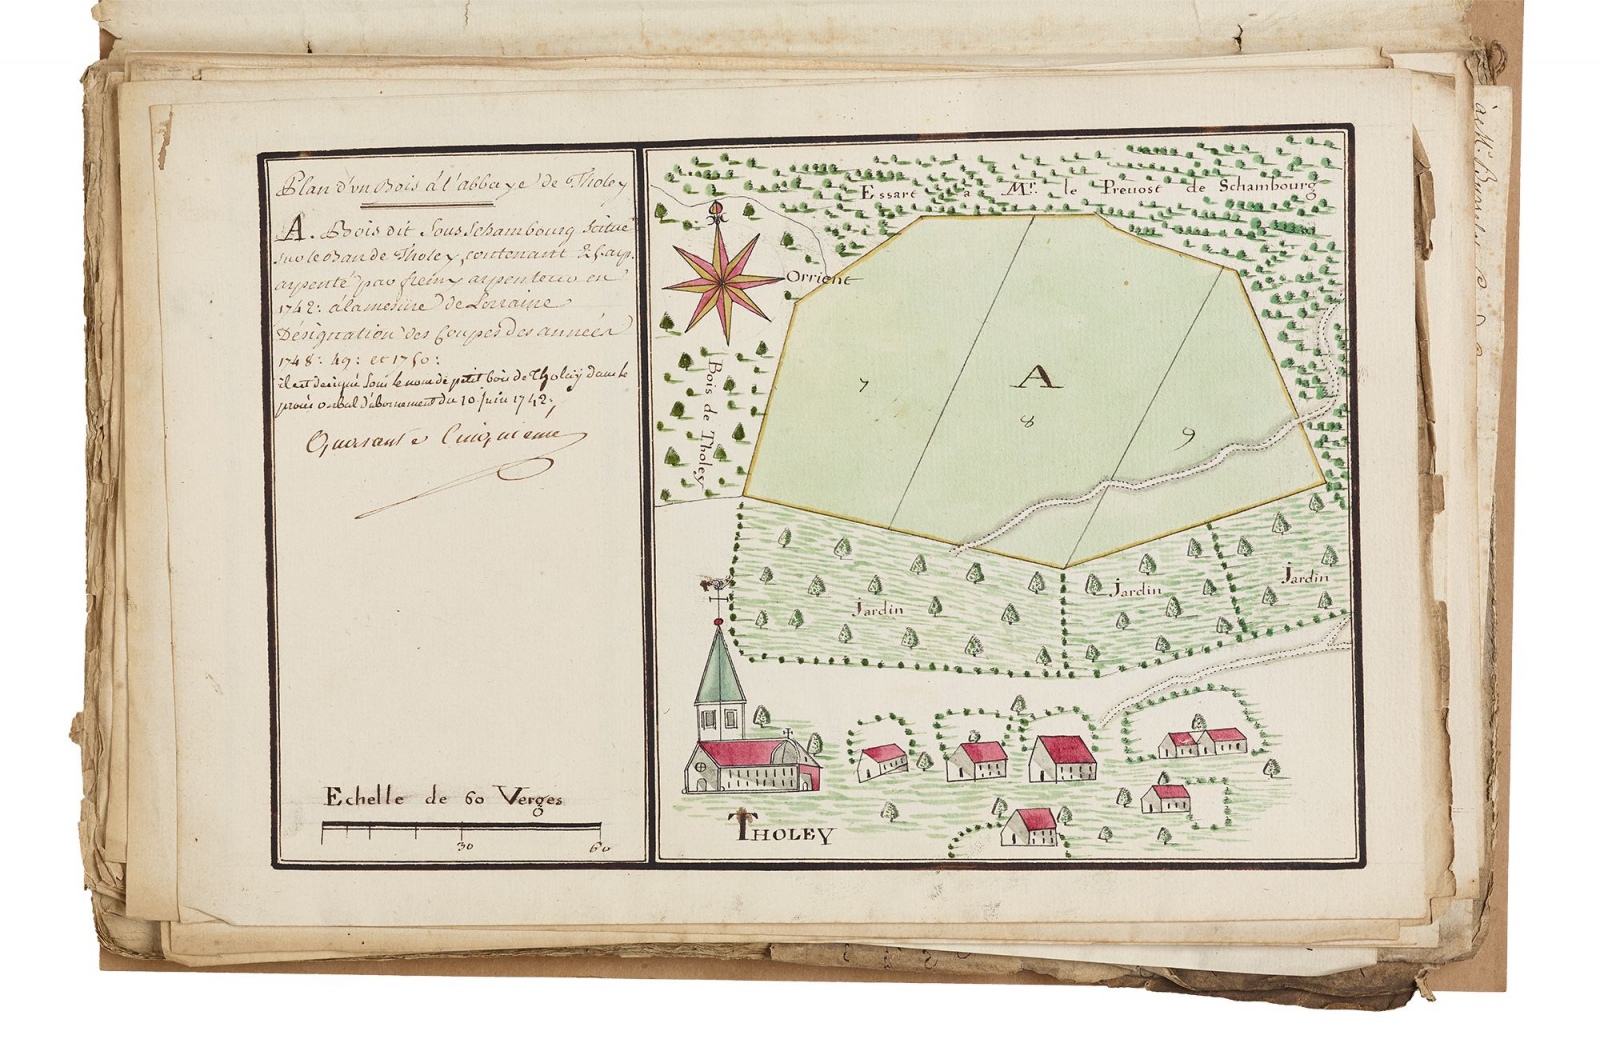 Plan d'un Bois á l'abbaye de Tholey
A. Bois dit Sous Schambourg scitué
sur le Ban de Tholey, contenant 25 arp.
arpenté par arpenteur en
1742: á la mesure de Lorraine
Désignation des Coupes des années
1748: 49: et 1750:
il est designé sous le nom de petit bois de Tholey dans le
procès verbal d'abornement du 10 juin 1742,
Quarante Cinquieme
Echelle de 60 Verges
30 60
Essart a Mr. le Preuost de Schambourg
Orrient
Bois de Tholey
7
A
8
9
Jardin
Jardin
Jardin
THOLEY